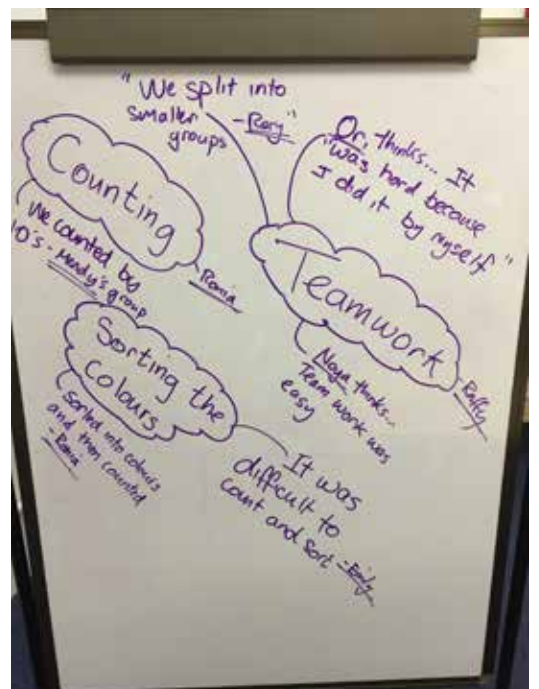 "We split into
smaller
groups
- Rory"
Or, thinks... It
"was hard because
I did it by myself"
Counting
- Rania
We counted by
10's - Mendy's group
Teamwork
- Raffey
Noya thinks...
Team work was
easy
Sorting the
colours
Sorted into colours
and then counted
- Rania
It was
difficult to
count and sort - Emily